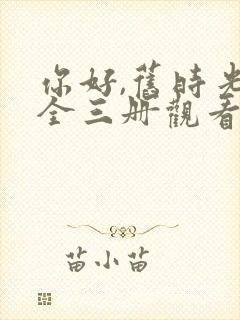 你好,舊時光
全三册觀看
苗小苗